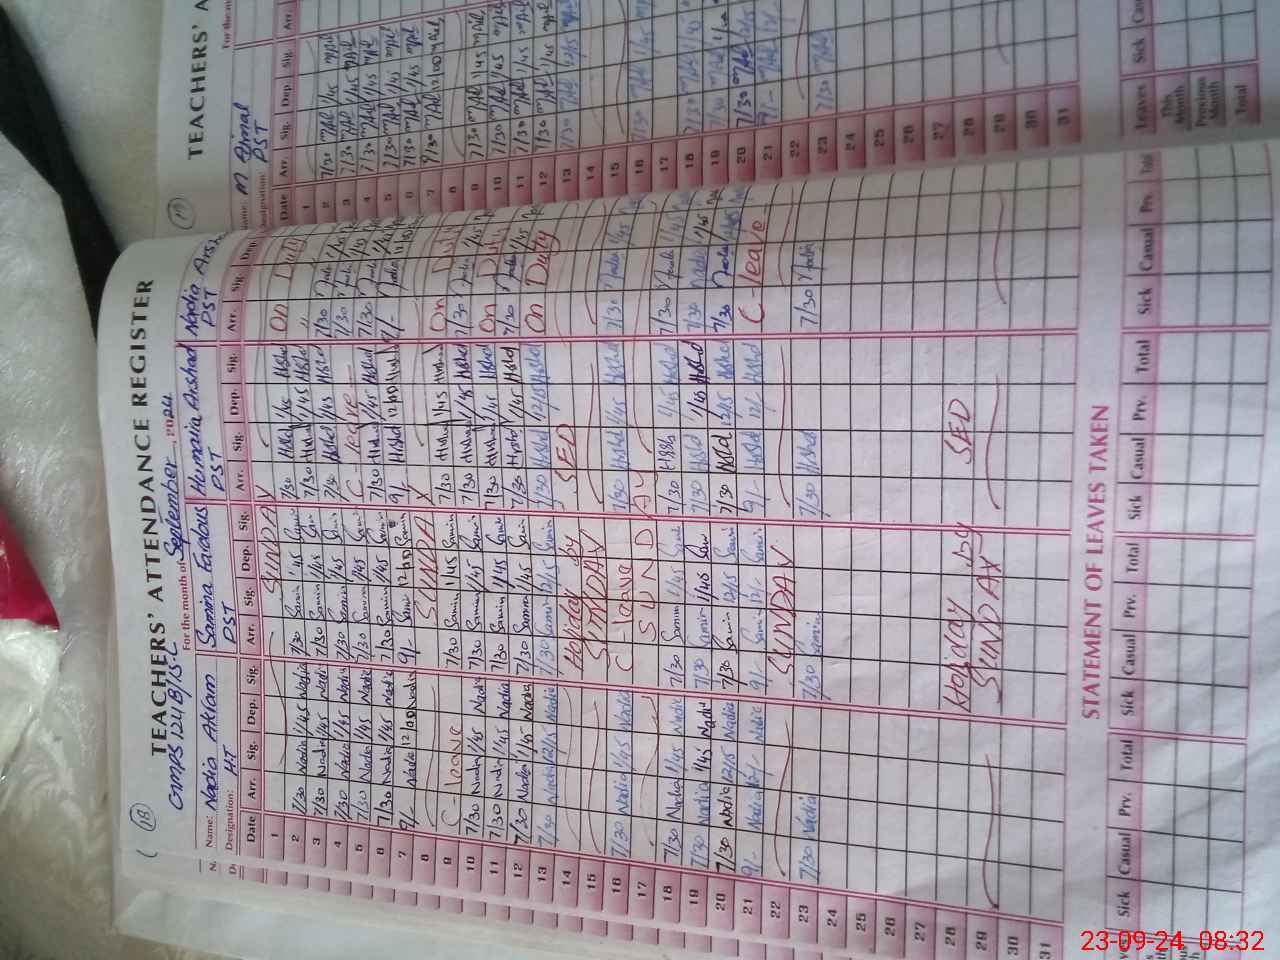 (18)
TEACHERS' ATTENDANCE REGISTER
GMPS 121/B/15-L For the month of September, 2024
Name: Nadia Akram Samina Firdous Humaira Arshad Nadia Arshad
Designation: HT PST PST PST
Date Arr. Sig. Dep. Sig. Arr. Sig. Dep. Sig. Arr. Sig. Dep. Sig. Arr. Sig. Dep.
1 SUNDAY On Duty
2 7/30 Nadia 1/45 Nadia 7/30 Samin 1/45 Samin 7/30 Hshd 1/45 Hshd
3 7/30 Nadia 1/45 Nadia 7/30 Samin 1/45 Sam 7/30 Hshd 1/45 Hshd 7/30 Nadia 1/45
4 7/30 Nadia 1/45 Nadia 7/30 Samin 1/45 Samin 7/30 Hshd 1/45 Hshd 7/30 Nadia 1/45
5 7/30 Nadia 1/45 Nadia 7/30 Samin 1/45 Samin C - leave 7/30 Nadia 1/45
6 7/30 Nadia 1/45 Nadia 7/30 Samin 1/45 Samin 7/30 Hshd 1/45 Hshd 7/30 Nadia
7 9/- Nadia 12/00 Nadia 9/- Sam 12/00 Samin 9/- Hshd 12/00 Hshd 9/- Nadia 12/00
8 SUNDAY
9 C - leave 7/30 Samin 1/45 Samin 7/30 Hshd 1/45 Hshd On Duty
10 7/30 Nadia 1/45 Nadia 7/30 Samin 1/45 Samin 7/30 Hshd 1/45 Hshd 7/30 Nadia 1/45
11 7/30 Nadia 1/45 Nadia 7/30 Samin 1/45 Samin 7/30 Hshd 1/45 Hshd On Duty
12 7/30 Nadia 1/45 Nadia 7/30 Samin 1/45 Samin 7/30 Hshd 1/45 Hshd 7/30 Nadia 1/45
13 7/30 Nadia 12/15 Nadia 7/30 Samin 12/15 Samin 7/30 Hshd 12/15 Hshd On Duty
14 Holiday by SED
15 SUNDAY
16 7/30 Nadia 1/45 Nadia C - leave 7/30 Hshd 1/45 Hshd 7/30 Nadia 1/45
17 SUNDAY
18 7/30 Nadia 1/45 Nadia 7/30 Samin 1/45 Samin 7/30 Hshd 1/45 Hshd 7/30 Nadia 1/45
19 7/30 Nadia 1/45 Nadia 7/30 Samin 1/45 Sam 7/30 Hshd 1/45 Hshd 7/30 Nadia 1/45
20 7/30 Nadia 12/15 Nadia 7/30 Samin 12/15 Samin 7/30 Hshd 12/15 Hshd 7/30 Nadia 12/15
21 9/- Nadia 12/- Nadia 9/- Samin 12/- Samin 9/- Hshd 12/- Hshd C - leave
22 SUNDAY
23 7/30 Nadia 7/30 Samin 7/30 Hshd 7/30 Nadia
24
25
26
27
28 Holiday by SED
29 SUNDAY
30
31
STATEMENT OF LEAVES TAKEN
Sick Casual Prv. Total Sick Casual Prv. Total Sick Casual Prv. Total Sick Casual Prv. Total
(19)
TEACHERS' A
For the m
Name: M Ajmal
Designation: PST
Date Arr. Sig. Dep. Sig. Arr.
1
2 7/30 1/45
3 7/30 1/45
4 7/30 1/45
5 7/30 1/45
6 7/30 1/45
7 9/- 12/00
8
9 7/30 1/45
10 7/30 1/45
11 7/30 1/45
12 7/30 1/45
13 7/30 12/15
14
15
16 7/30 1/45
17
18 7/30 1/45
19 7/30 1/45
20 7/30 12/15
21 9/-
22
23 7/30
24
25
26
27
28
29
30
31
Leaves Sick Cas
This Month
Previous Month
Total
23-09-24 08:32